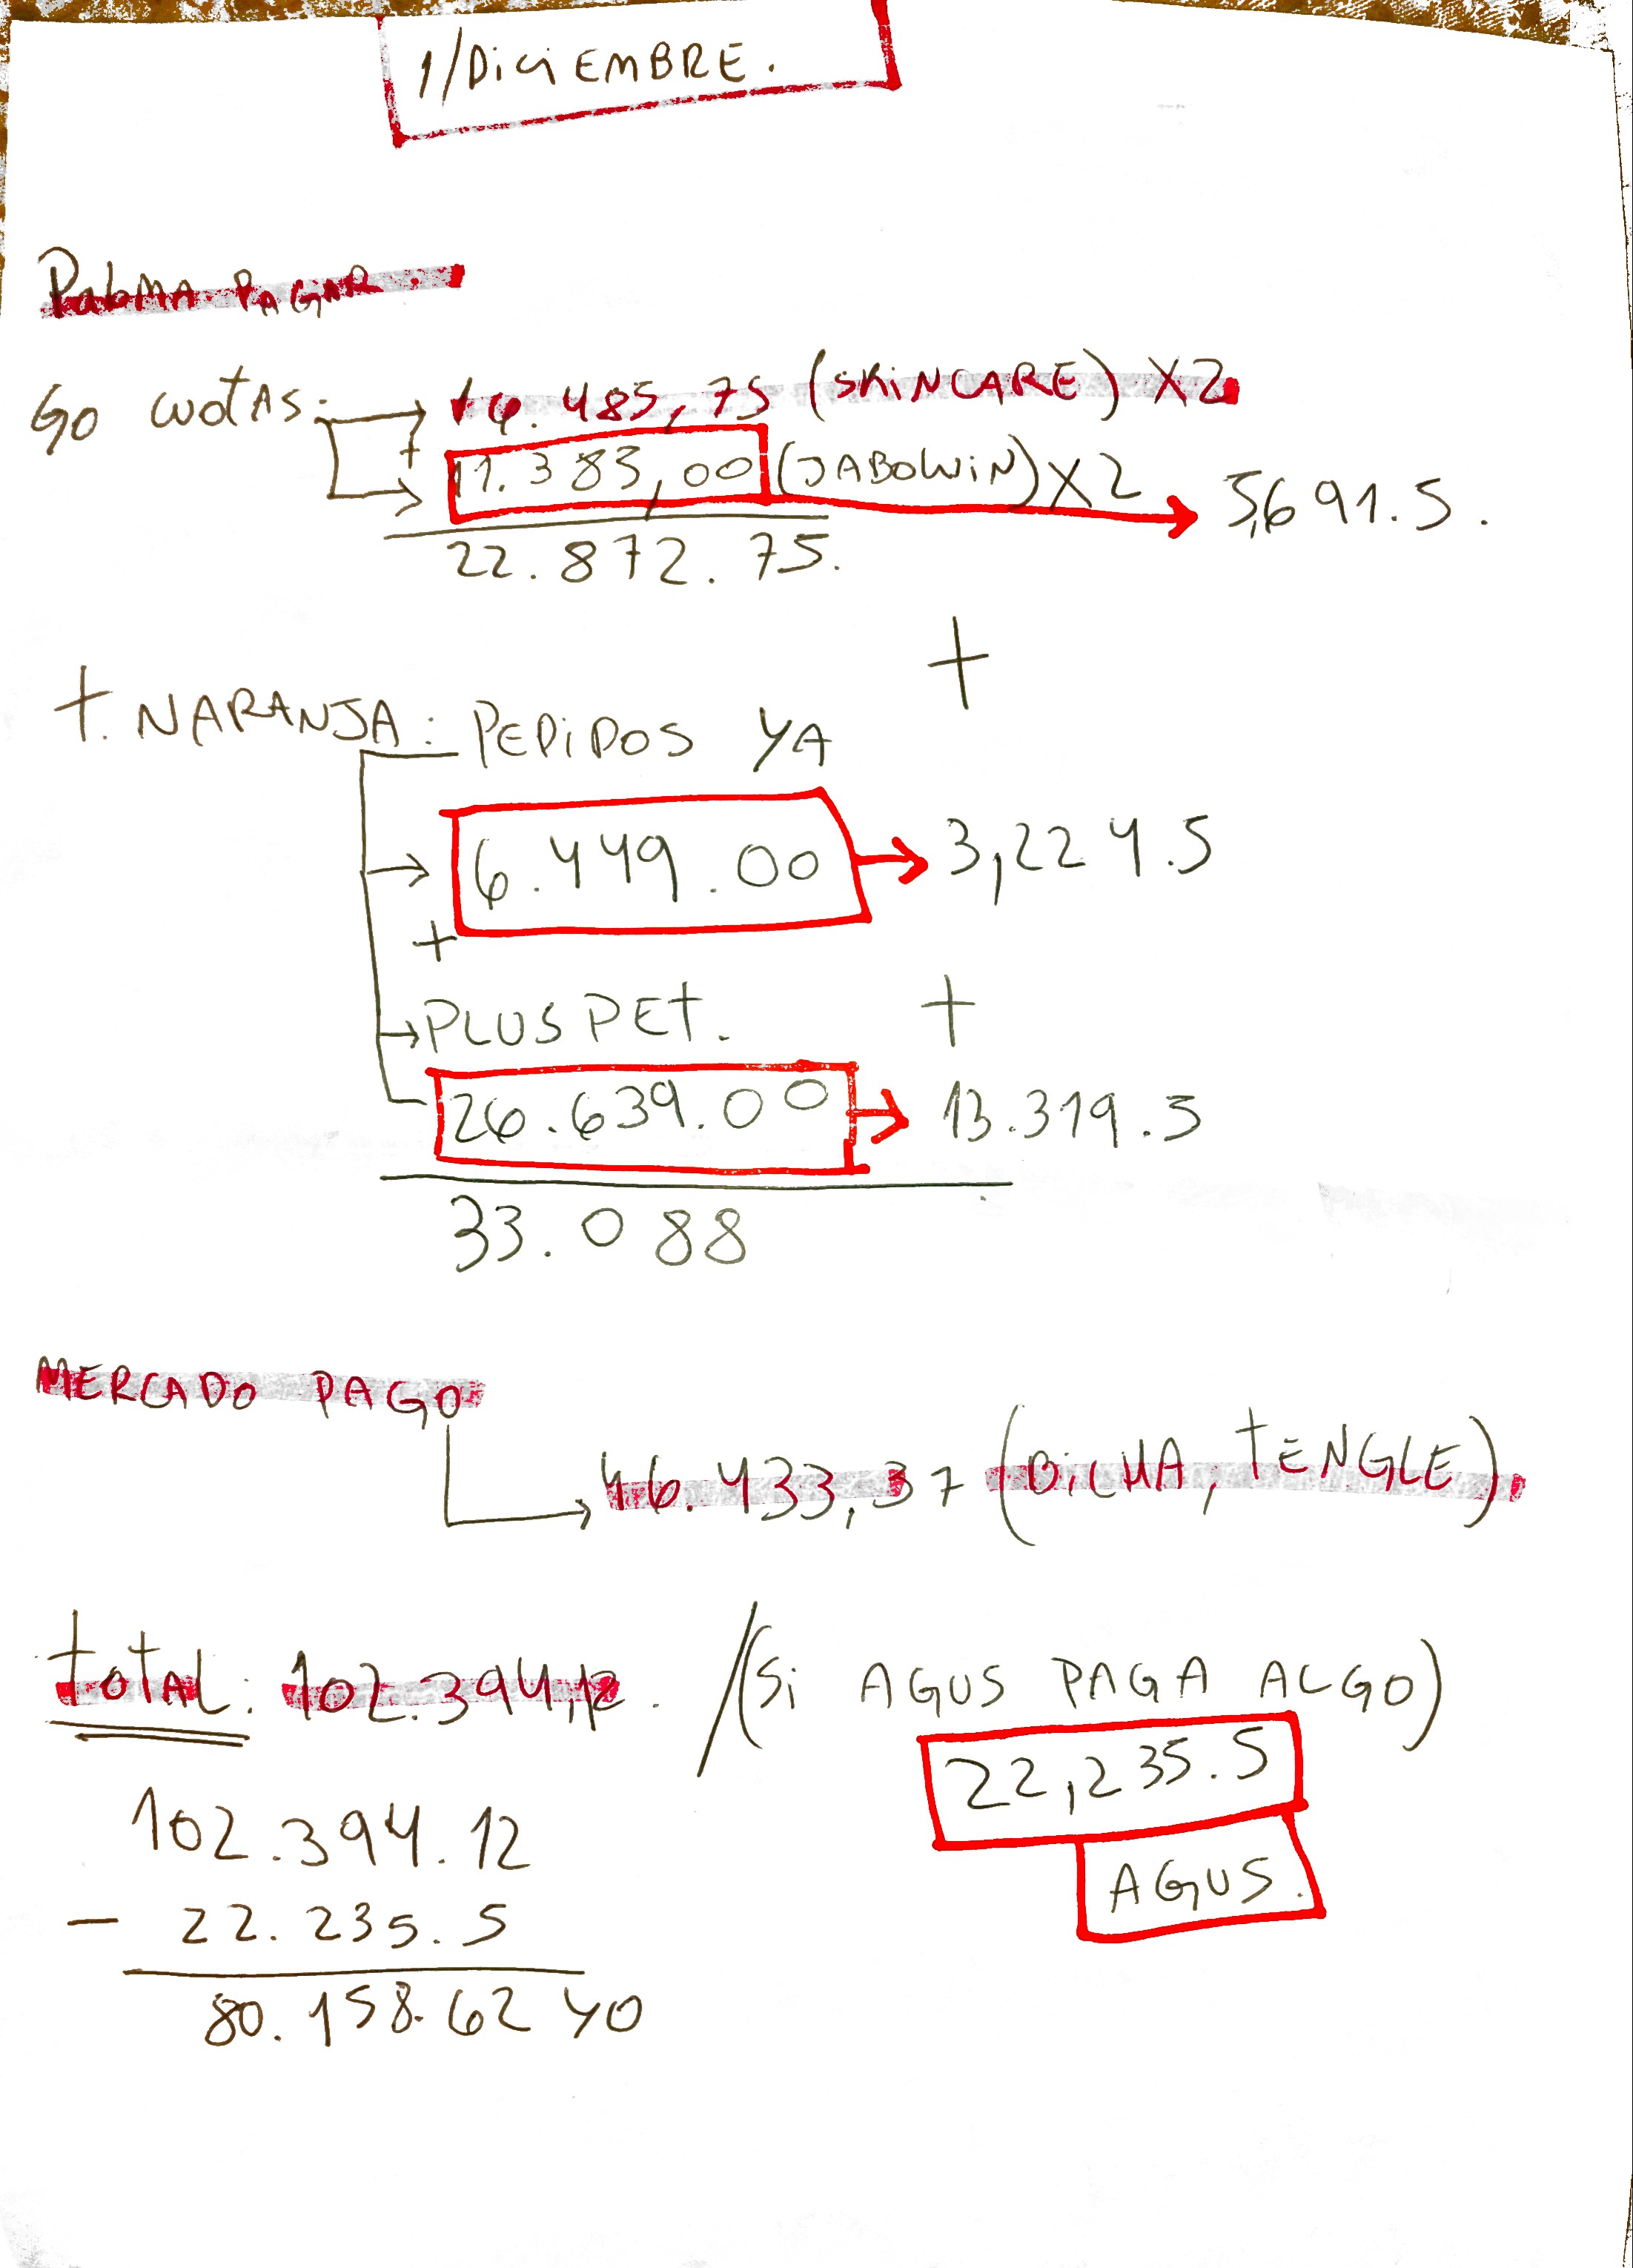 1/DiciEMBRE.
PAGAR.
GO CUOTAS:
485,75 (SKiNCARE) X2
+
11.383,00 (JABOWiN) X2 → 5,691.5.
22.872.75.
+
T. NARANJA: PEDiDOS YA
6.449.00 → 3,224.5
+
→ PLUS PET. +
26.639.00 → 13.319.5
33.088
MERCADO PAGO
46.433,37 (DiLMA, TENGLE).
TOTAL: 102.394,12. / (Si AGUS PAGA ALGO)
22,235.5
AGUS.
102.394.12
- 22.235.5
80.158.62 YO